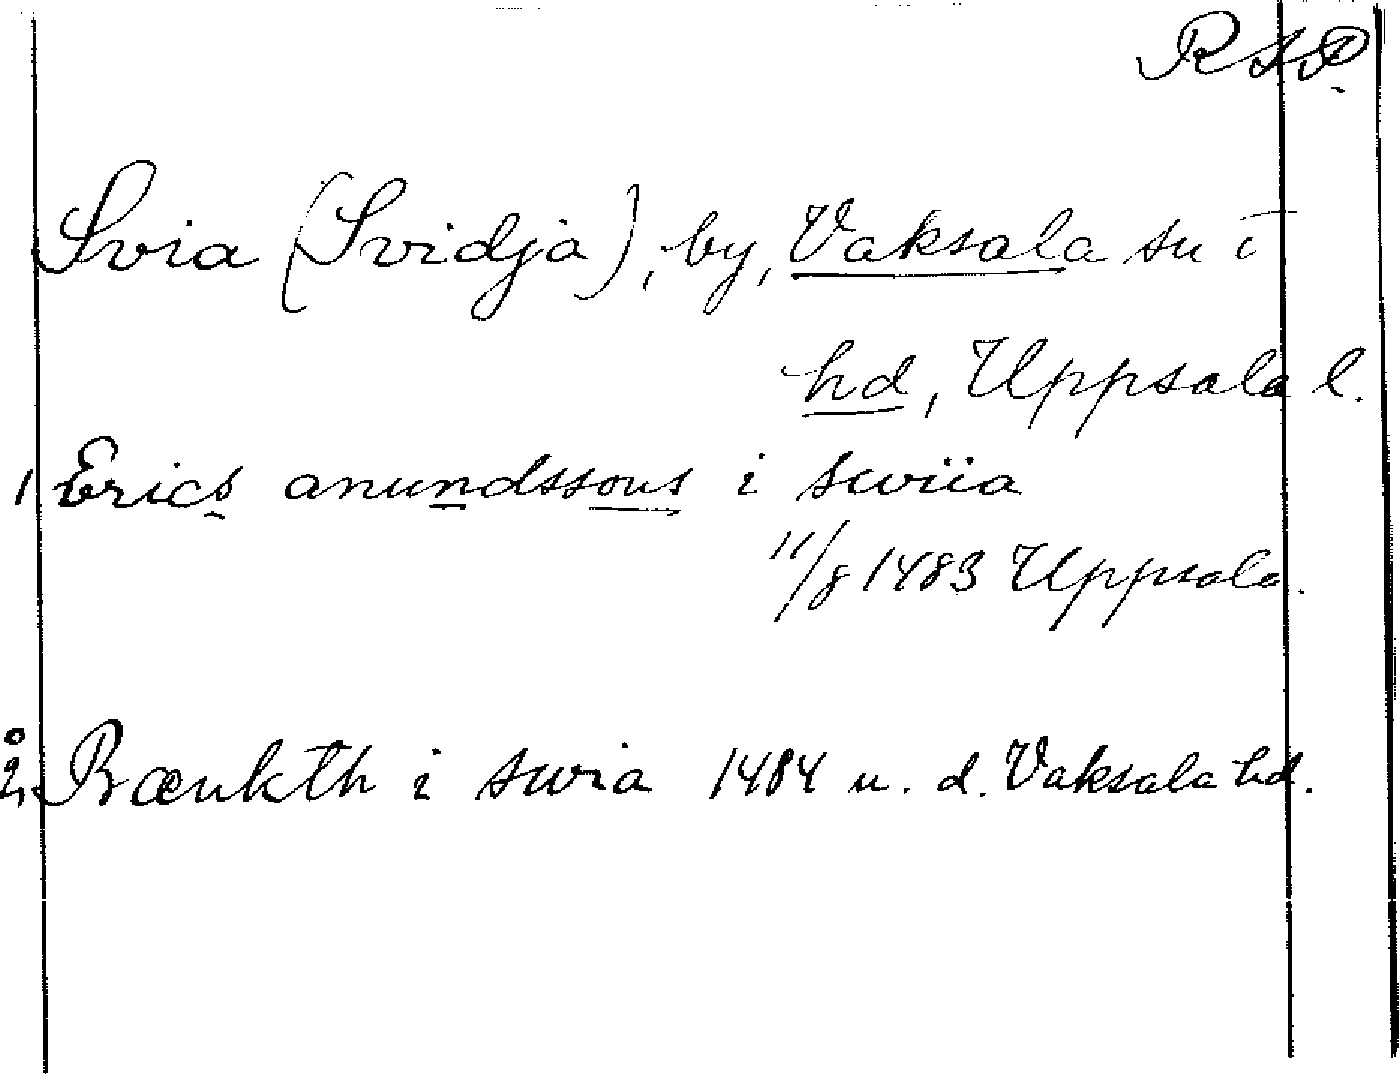 RAP
Svia (Svidja), by, Vaksala sn i
hd, Uppsala l.
1 Erics anundssons i swiia
11/8 1483 Uppsala.
2. Bænkth i swia 1484 u. d. Vaksala hd.